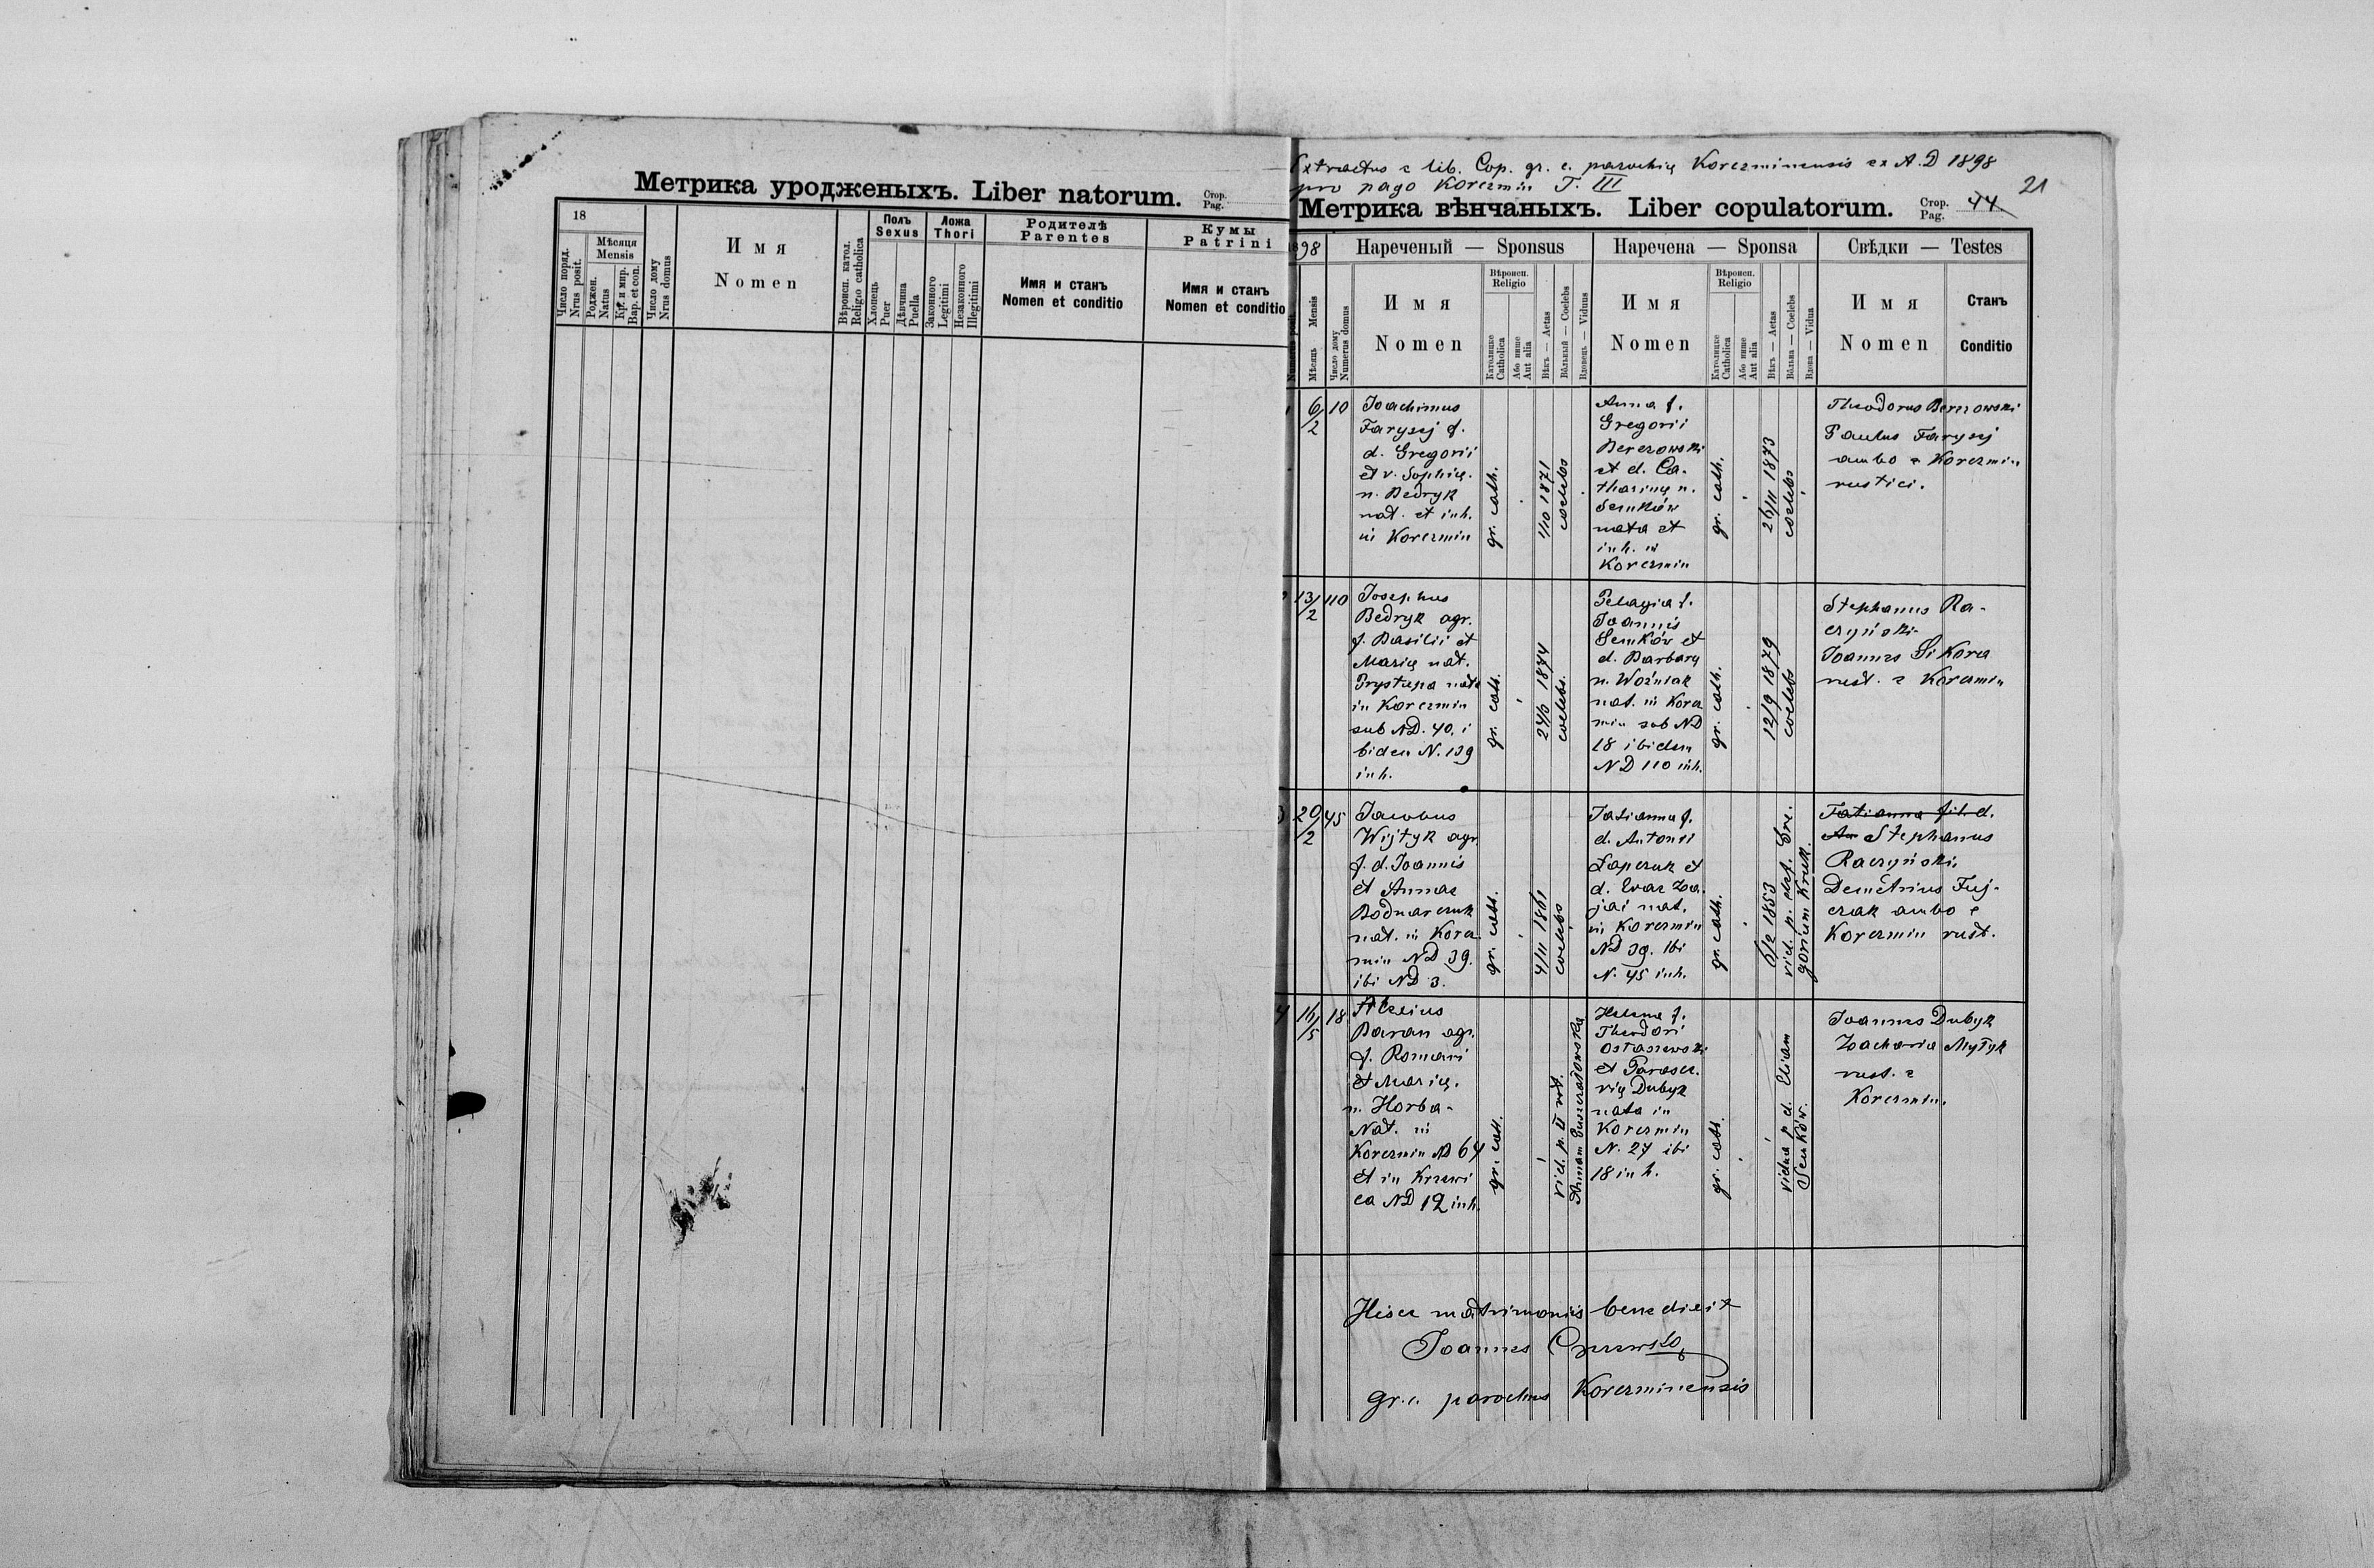 Метрика уродженыхъ. Liber natorum. Стор. Pag.
18
Число поряд. Nrus posit.
Мѣсяця Mensis
Роджен. Natus
Кр. и мир. Bap. et con.
Число дому Nrus domus
Имя
Nomen
Вѣроисп. катол. Religio catholica
Полъ Sexus
Хлопець Puer
Дѣвчина Puella
Ложа Thori
Законного Legitimi
Незаконного Illegitimi
Родителѣ Parentes
Имя и станъ
Nomen et conditio
Кумы Patrini
Имя и станъ
Nomen et conditio
Extractus e lib. Cop. gr. c. parochię Korczminensis ex A.D 1898
pro pago Korczmin T. III
21
Метрика вѣнчаныхъ. Liber copulatorum. Стор. Pag. 44
98
Нареченый — Sponsus
Наречена — Sponsa
Свѣдки — Testes
Numerus posit.
Мѣсяць Mensis
Число дому Numerus domus
Имя
Nomen
Вѣроисп. Religio
Католицке Catholica
Або инше Aut alia
Вѣкъ — Aetas
Вôльный — Coelebs
Вдовець — Viduus
Имя
Nomen
Вѣроисп. Religio
Католицке Catholica
Або инше Aut alia
Вѣкъ — Aetas
Вôльна — Coelebs
Вдова — Vidua
Имя
Nomen
Станъ
Conditio
6/2
10
Joachimus
Farysej f.
d. Gregorii
et v. Sophię.
n. Bedryk
nat. et inh.
in Korczmin
gr. cath.
1/10 1871
coelebs
Anna f.
Gregorii
Berezowski
et d. Ca-
tharinę n.
Semków
nata et
inh. in
Korczmin
gr. cath.
26/11 1873
coelebs
Theodorus Berezowski
Paulus Farysej
ambo e Korczmin
rustici.
13/2
110
Josephus
Bedryk agr.
f. Basilii et
Marię nat.
Prystupa nat.
in Korczmin
sub ND. 40. i
bidem N. 139
inh.
gr. cath.
1874
coelebs.
Pelagia f.
Joannis
Semków et
d. Barbarę
n. Woźniak
nat. in Korcz
min sub ND
18 ibidem
ND 110 inh.
gr. cath.
12/9 1879
coelebs
Stephanus Ra-
czyński
Joannes Sikora
rust. e Korczmin
3
20/2
45
Jacobus
Wijtyk agr.
f. d. Joannis
et Annae
Bodnarczuk
nat. in Korcz-
min ND 39.
ibi ND 3.
gr. cath.
4/11 1861
coelebs
Tatianna f.
d. Antonii
Łapczuk et
d. Evae Za-
jai nat.
in Korczmin
ND 39. ibi
N. 45 inh.
gr. cath.
6/2 1853
vid. p. def. Gre-
gorium Kruk.
Tatianna fil. d.
An Stephanus
Raczyński.
Demetrius Fuj-
czak ambo e
Korczmin rust.
4
16/5
18
Alexius
Baran agr.
f. Romani
et Marię.
n. Horba-
Nat. in
Korczmin ND 64
et in Krzewi
ca ND 12 inh.
gr. cath.
vid. p. II vot.
Annam
Helena f.
Theodori
Ostaszewski
et Parasce-
vię Dubyk
nata in
Korczmin
N. 27 ibi
18 inh.
gr. cath.
vidua p. d. Eliam
Semków.
Joannes Dubyk
Zacharia Mytyk
rust. e
Korczmin.
Hisce matrimoniis benedixit
Joannes
gr. c. parochus Korczminensis